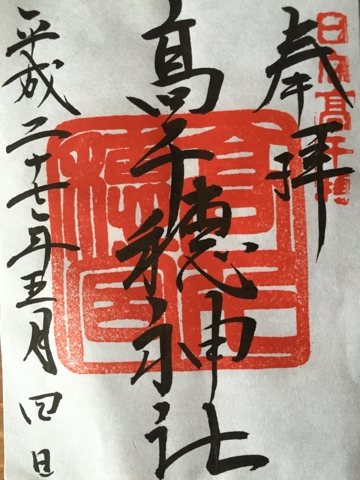 奉拝
日向高千穂
高千穂神社
平成二十七年五月四日